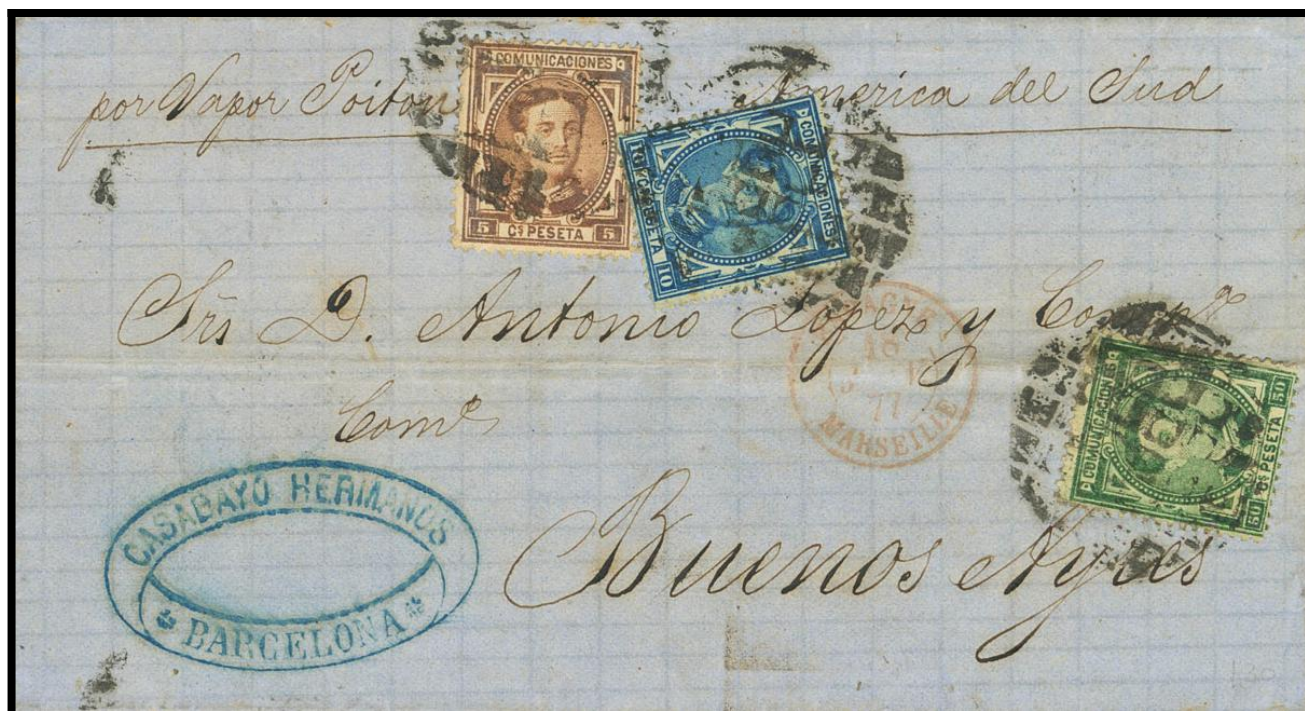 por Vapor Poitou America del Sud
COMUNICACIONES
5 Cs PESETA 5
COMUNICACIONES
10 Cs PESETA 10
Srs D. Antonio Lopez y Compa
18
77
MARSEILLE
COMUNICACIONES
50 Cs PESETA 50
Buenos Ayres
CASABAYO HERMANOS
BARCELONA